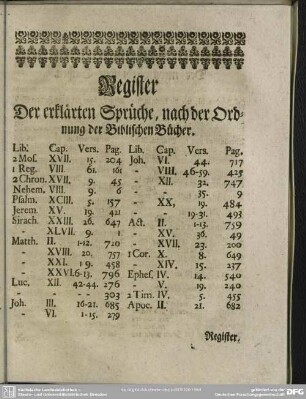 Register
Der erklärten Sprüche, nach der Ord-
nung der Biblischen Bücher.
Lib. Cap. Vers. Pag. Lib. Cap. Vers. Pag.
2 Mos. XVII. 15. 204 Joh. VI. 44. 717
1 Reg. VIII. 61. 161 - VIII. 46-59. 425
2 Chron. XVII. 9. 45 - XII. 32. 747
Nehem. VIII. 9. 6 - - 35. 9
Psalm. XCIII. 5. 157 - XX. 19. 484
Jerem. XV. 19. 421 - - 19-31. 493
Sirach. XXIII. 26. 647 Act. II. 1-13. 759
- XLVII. 9. 1 - XV. 36. 49
Matth. II. 1-12. 720 - XVII. 23. 200
- XVIII. 20. 757 1 Cor. X. 8. 649
- XXI. 1-9. 458 - XIV. 15. 237
- XXVI. 6-13. 796 Ephes. IV. 14. 540
Luc. XII. 42-44. 276 - V. 19. 240
- - - 303 2 Tim. IV. 5. 455
Joh. III. 16-21. 685 Apoc. II. 21. 682
- VI. 1-15. 279
Register.